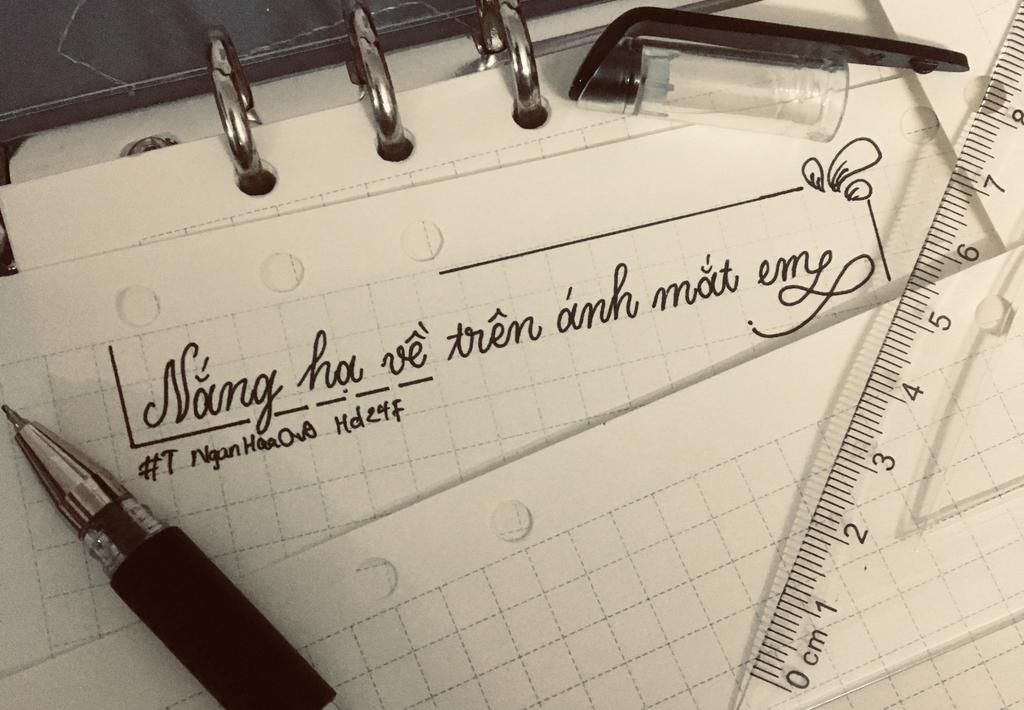 Nắng hạ về trên ánh mắt em
#T NganHaaOvO Hd24F
8
7
6
5
4
3
2
1
0 cm